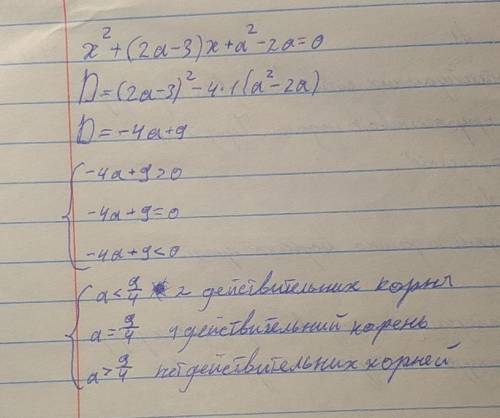 x² + (2a-3)x + a² - 2a = 0
D = (2a-3)² - 4·1(a² - 2a)
D = -4a + 9
-4a + 9 > 0
-4a + 9 = 0
-4a + 9 < 0
a < 9/4 2 действительных корня
a = 9/4 1 действительний корень
a > 9/4 нет действительных корней